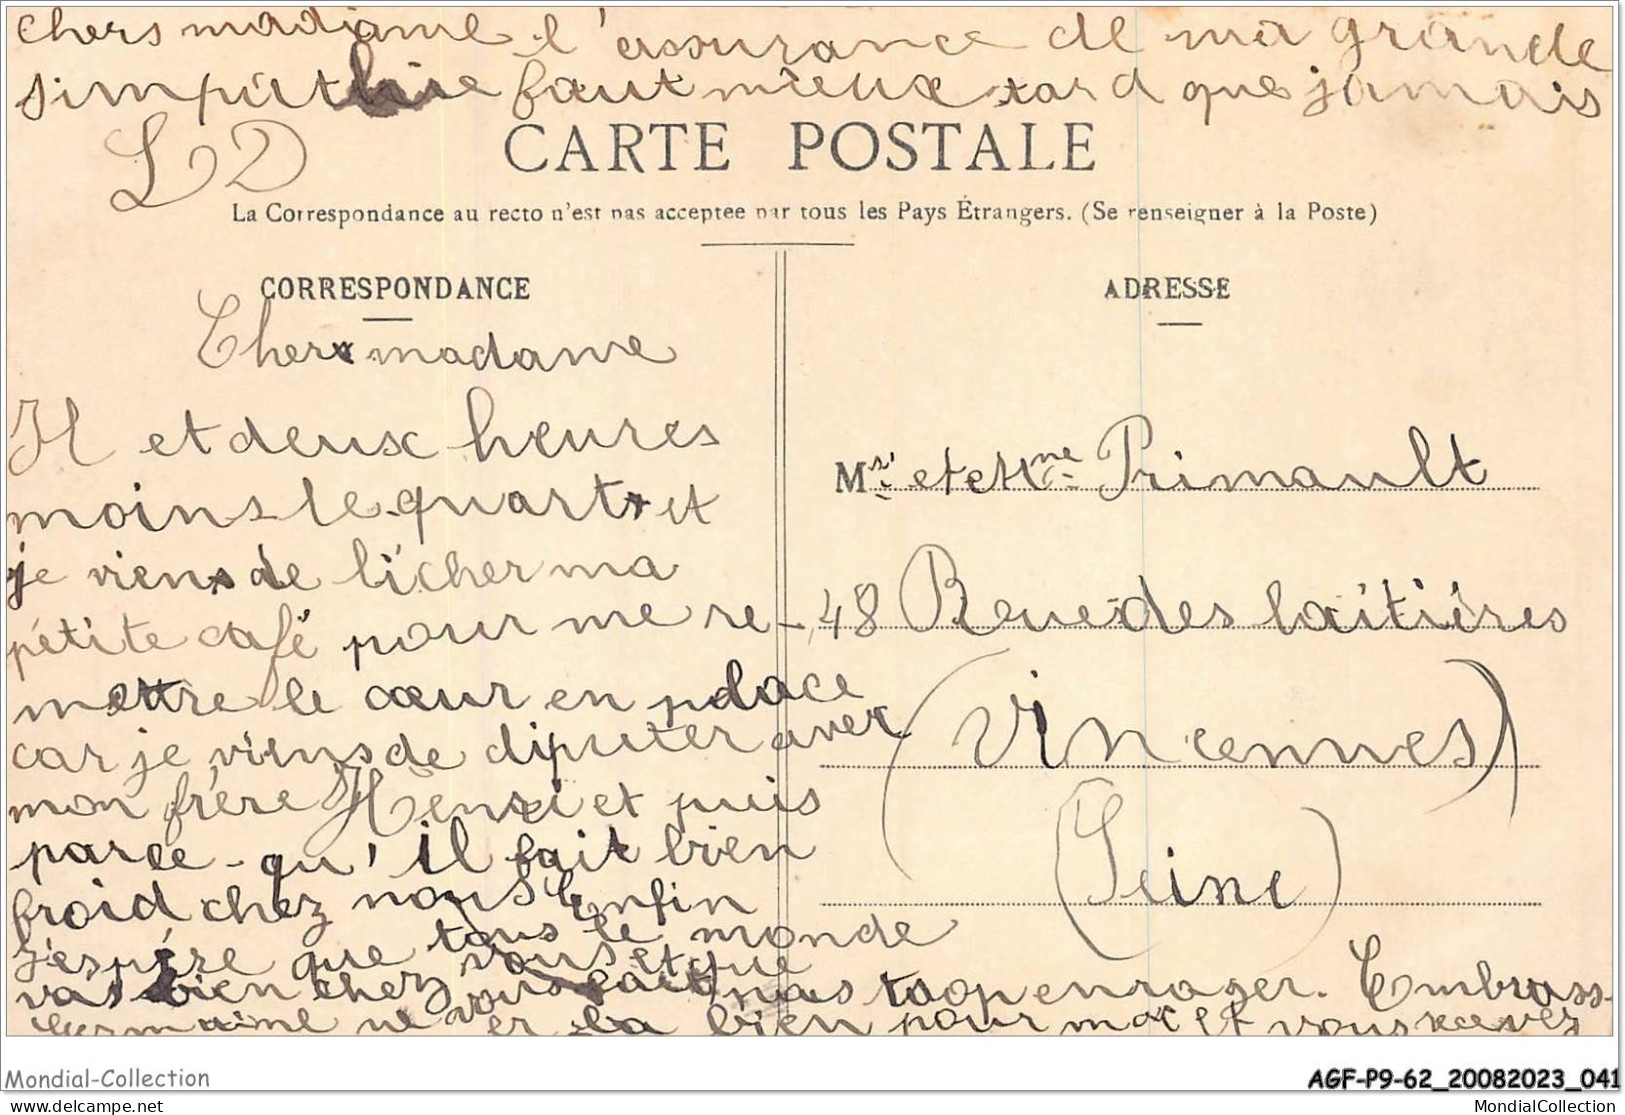 chers madame l'assurance de ma grande
simpathie faut mieux tard que jamais
LD
CARTE POSTALE
La Correspondance au recto n'est pas acceptée par tous les Pays Étrangers. (Se renseigner à la Poste)
CORRESPONDANCE
Chers madame
Il et deux heures
moins le quart et
je viens de lícher ma
pétite café pour me re-
mettre le cœur en place
car je viens de diputer avec
mon frère Henri et puis
parce-qu'il fait bien
froid chez nous Enfin
j'espére que tous le monde
vas bien chez vous et que
pas troop enrager. Embrass-
bien pour moi et vous recevez
ADRESSE
Mr. et Mme. Primault
48 Rue des laítiéres
(Vincennes)
(Seine)
Mondial-Collection
delcampe.net
AGF-P9-62_20082023_041
MondialCollection